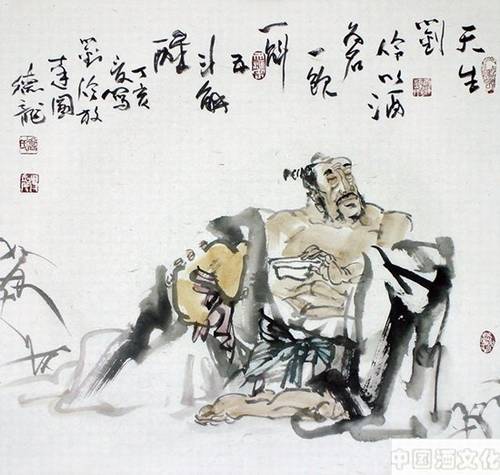 天生
劉
伶以酒
為名
一飲
一斛
五
斗解
酲
丁亥
夏寫
劉伶放
達圖
德龍
中国酒文化